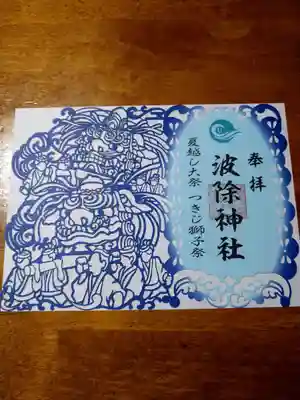 奉拝
波除神社
夏越し大祭 つきじ獅子祭